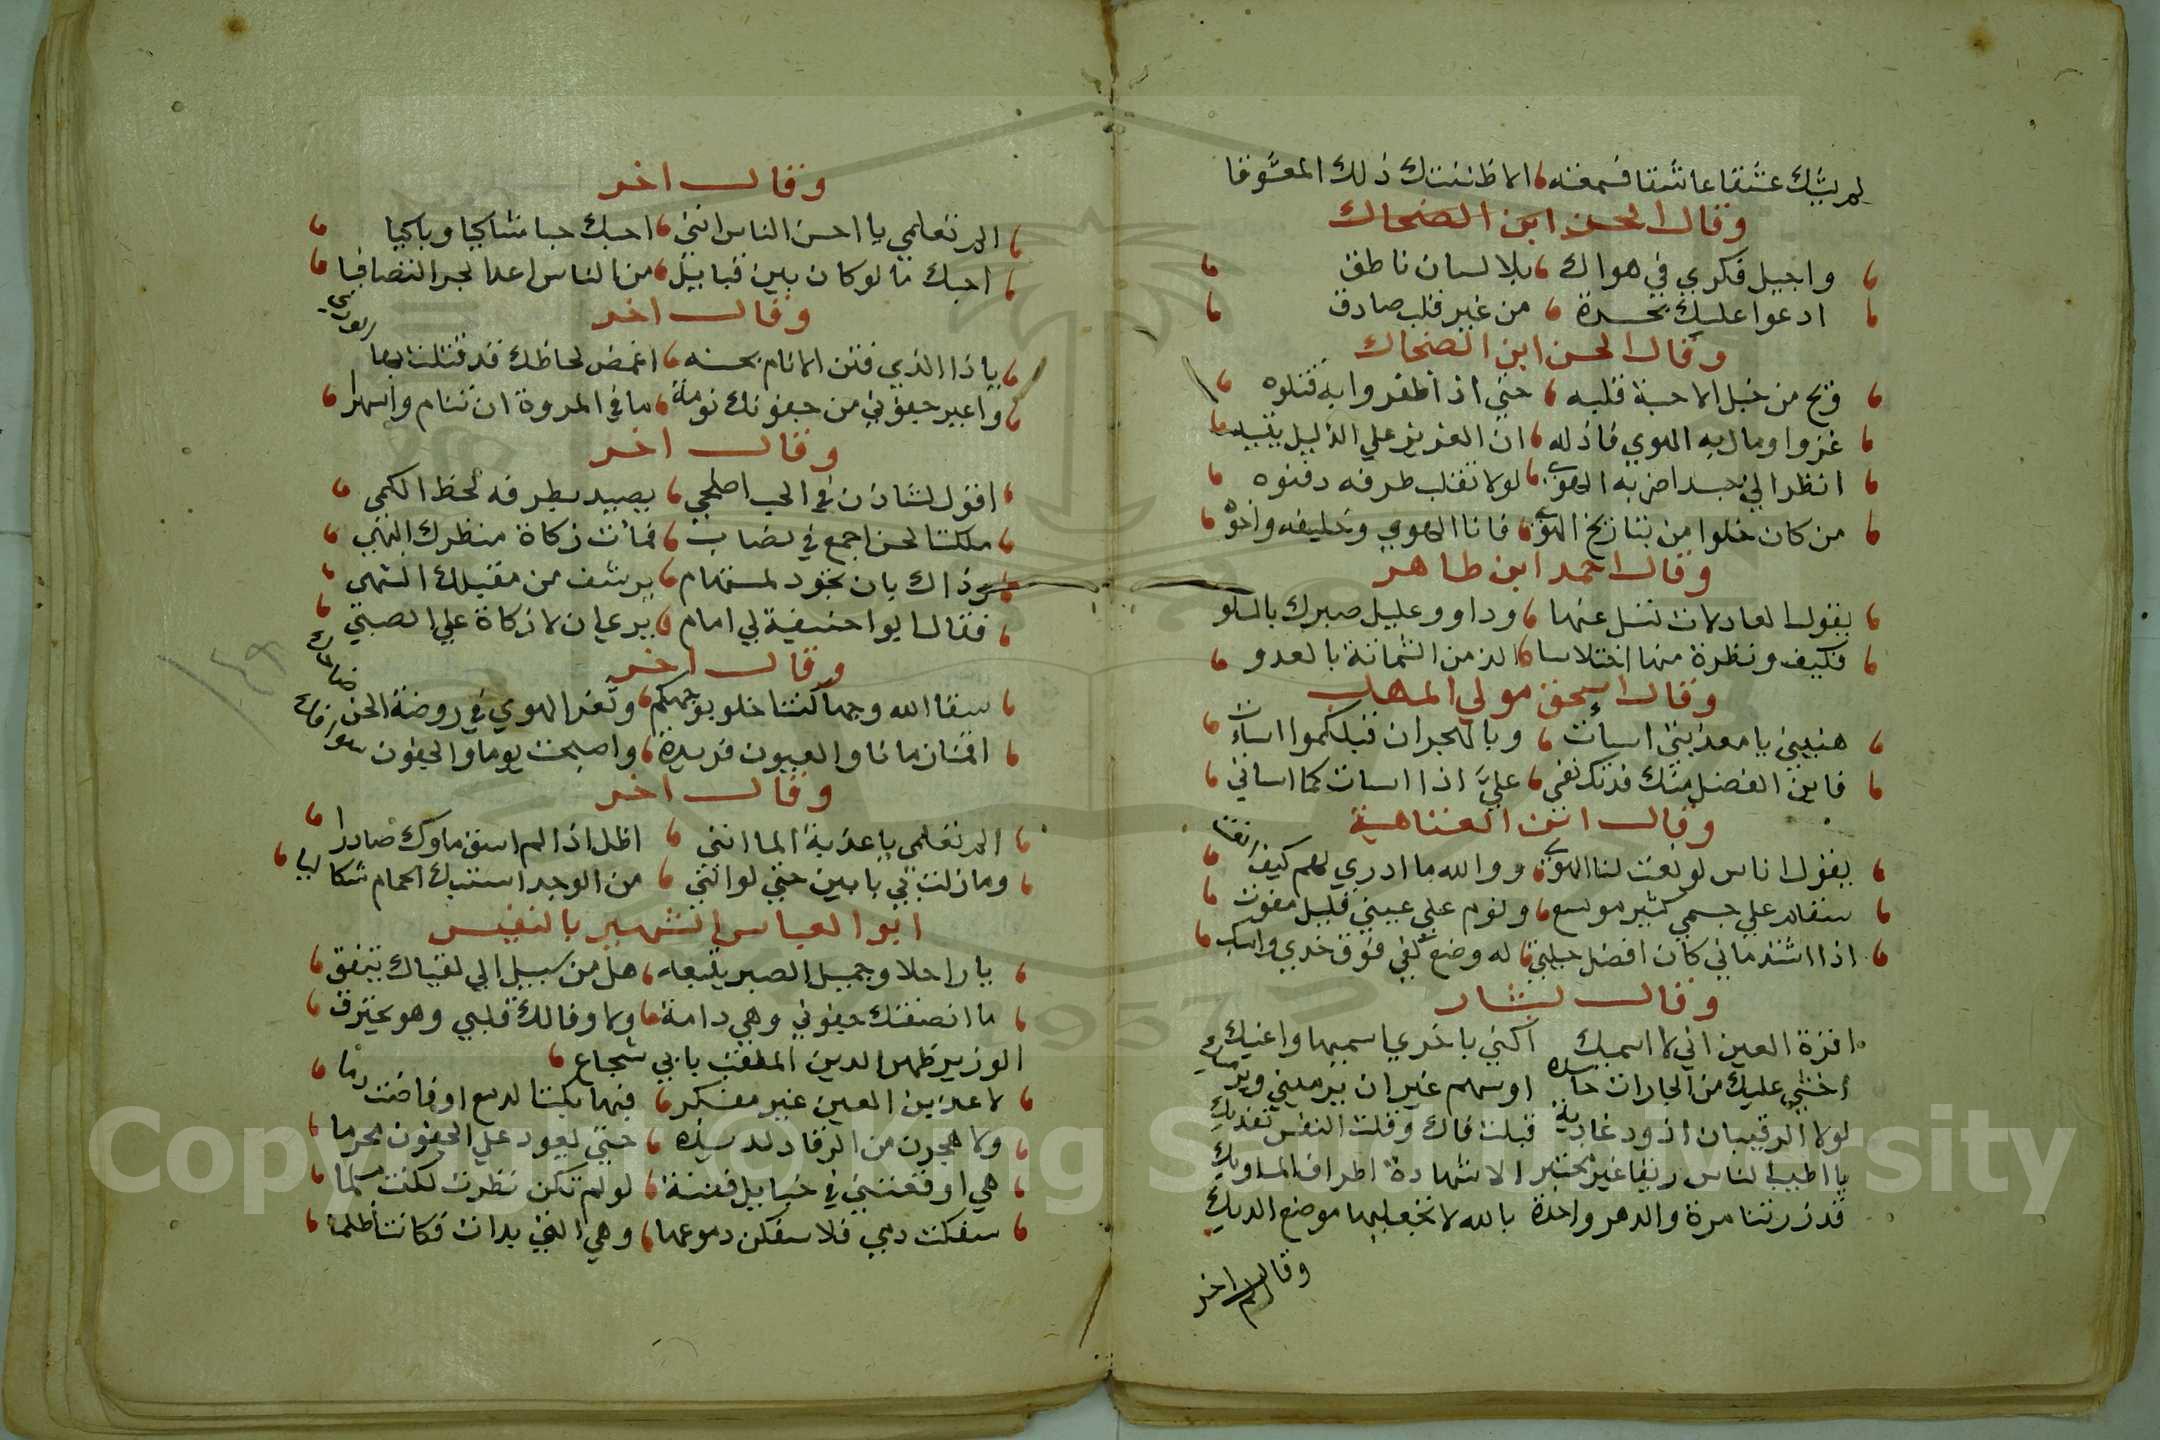 لم يشك عشقا عاشقا فسمعته الا ظننتك ذلك المعشوقا
وقال الحسن ابن الضحاك
واجيل فكري في هواك بلا لسان ناطق
ادعوا عليك بحسرة من غير قلب صادق
وقال الحسن ابن الضحاك
ويح من خبل الاحبة قلبه حتي اذا ظفروا به قتلوه
عزوا ومال به الهوي فاذله ان العزيز علي الذليل يتيه
انظر الي جسد اضر به الهوي لولا تقلب طرفه دفنوه
من كان خلوا من تباريح الهوي فانا الهوي وحليفه واخوه
وقال احمد ابن طاهر
يقول العادلات تسل عنها وداوو عليل صبرك بالسلو
فكيف ونظرة منها اختلاسا الذ من الشماتة بالعدو
وقال اسحق مولي المهلب
هبيني يا معذبتي اسأت وبالهجران قبلكموا اسات
فاين الفضل منك فدتك نفسي علي اذا اسات كما اساتي
وقال ابن العتاهية
يقول اناس لو نعت لنا الهوي ووالله ما ادري لهم كيف انعت
سقام علي جسمي كثير موسع ونوم علي عيني قليل مفوت
اذا اشتد ماني كان افضل حيلتي له وضع كفي فوق خدي واسكت
وقال بشار
اقرة العين اني لا اسميك اكني باخري اسميها واعنيك
اخشي عليك من الجارات حاسدة او سهم غيران يرميني ويرميك
لولا الرقيبان اذ ودعت غادية قبلت فاك وقلت النفس تفديك
يا اطيب الناس ريقا غير مختبر الا شهادة اطراف المساويك
قد زرتنا مرة والدهر واحدة بالله لا تجعليها موضع الديك
وقال اخر
وقال اخر
الم تعلمي يا احسن الناس انني احبك حبا شاكيا وباكيا
احبك ما لو كان بين قبايل من الناس اعدا لجر التصافيا
وقال اخر
يا ذا الذي فتن الانام بحسنه اغمض لحاظك قد قتلت بها الوري
واعير جفوني من جفونك نومة ما في المروة ان تنام واسهرا
وقال اخر
اقول لشادن في الحب اضحي يصيد بطرفه لحظ الكمي
ملكت الحسن اجمع في نصاب فأت زكاة منظرك البهي
وذاك بان تجود لمستهام برشف من مقبلك الشهي
فقال ابو حنيفة لي امام يري ان لا زكاة علي الصبي
وقال اخر
سقا الله وجها كنت اخلو بوجهكم وثغر الهوي في روضة الحسن ضاحك
اقمنا زمانا والعيون قريرة واصبحت يوما والجفون سوافك
وقال اخر
الم تعلمي يا عذبة الما انني اظل اذا لم اسق ماوك صادرا
وما زلت بي يا بين حتي لو انني من الوجد استبك الحمام شكا ليا
ابو العباس الشهير بالنفيس
يا راحلا وجميل الصبر يتبعه هل من سبيل الي لقياك يتفق
ما انصفتك جفوني وهي دامة ولا وفا لك قلبي وهو يحترق
الوزير ظهير الدين الملقب بابي شجاع
لا عذبن العين غير مفكر فيها بكت الدمع او فاضت دما
ولا هجرن من الرقاد لذيذه حتي يعود علي الجفون محرما
هي اوقعتني في حبايل فتنة لو لم تكن نظرت لكنت مسلما
سفكت دمي فلا سفكن دموعها وهي التي بدات فكانت اظلما